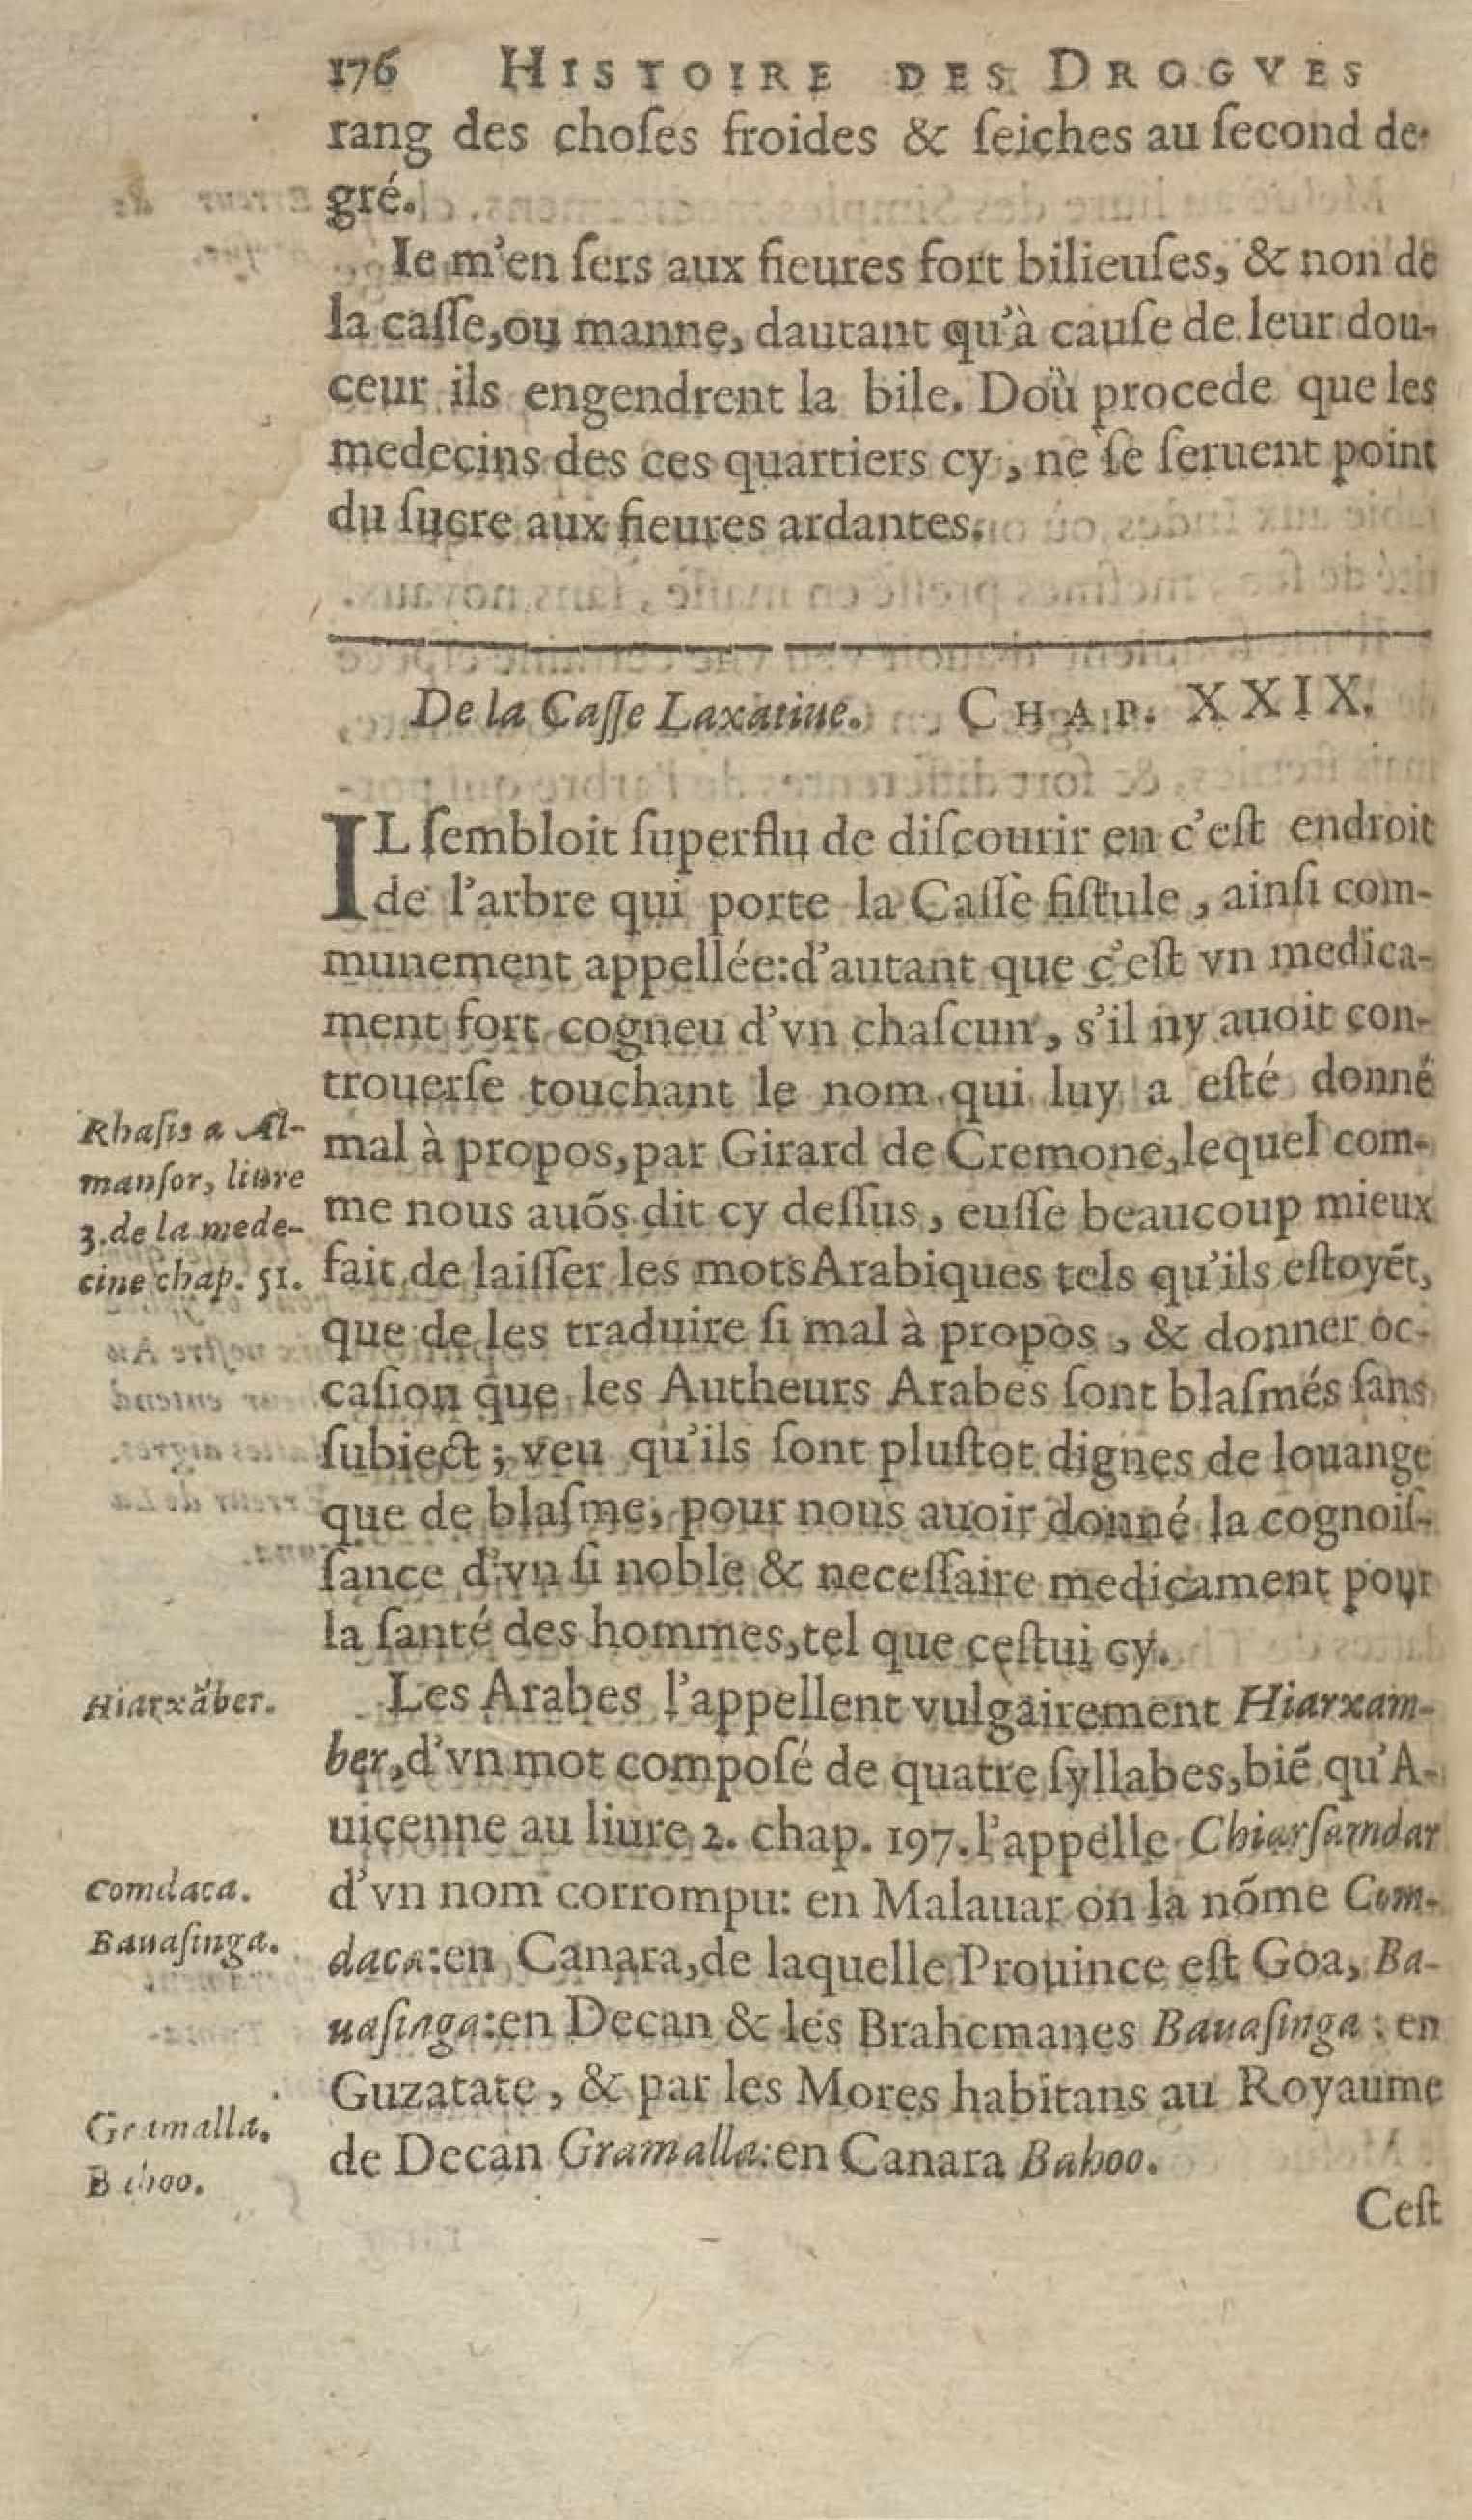 176 HISTOIRE DES DROGVES
rang des choſes froides & ſeiches au ſecond de-
gré.
Ie m'en ſers aux fieures fort bilieuſes, & non de
la caſſe,ou manne, dautant qu'à cauſe de leur dou-
ceur ils engendrent la bile. Doù procede que les
medecins des ces quartiers cy, ne ſe ſeruent point
du ſucre aux fieures ardantes.
De la Caſſe Laxatiue. CHAP. XXIX.
IL ſembloit ſuperflu de diſcourir en c'eſt endroit
de l'arbre qui porte la Caſſe fiſtule, ainſi com-
munement appellée:d'autant que c'eſt vn medica-
ment fort cogneu d'vn chaſcun, s'il ny auoit con-
trouerſe touchant le nom qui luy a eſté donné
Rhaſis a Al-
manſor, liure
3.de la mede-
cine chap. 51.
mal à propos,par Girard de Cremone,lequel com-
me nous auõs dit cy deſſus, euſſe beaucoup mieux
fait de laiſſer les mots Arabiques tels qu'ils eſtoyẽt,
que de les traduire ſi mal à propos, & donner oc-
caſion que les Autheurs Arabes ſont blaſmés ſans
ſubiect; veu qu'ils ſont pluſtot dignes de louange
que de blaſme, pour nous auoir donné la cognoiſ-
ſance d'vn ſi noble & neceſſaire medicament pour
la ſanté des hommes,tel que ceſtui cy.
Hiarxãber.
Les Arabes l'appellent vulgairement Hiarxam-
ber,d'vn mot compoſé de quatre ſyllabes,biẽ qu'A-
uicenne au liure 2. chap. 197.l'appelle Chiarſamdar
Comdaca.
d'vn nom corrompu: en Malauar on la nõme Com-
Bauaſinga.
daca:en Canara,de laquelle Prouince eſt Goa, Ba-
uaſinga:en Decan & les Brahcmanes Bauaſinga: en
Guzatate, & par les Mores habitans au Royaume
Gramalla.
de Decan Gramalla:en Canara Bahoo.
Bahoo.
Ceſt